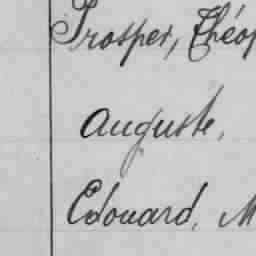 Prosper, Théop
Auguste,
Edouard, M